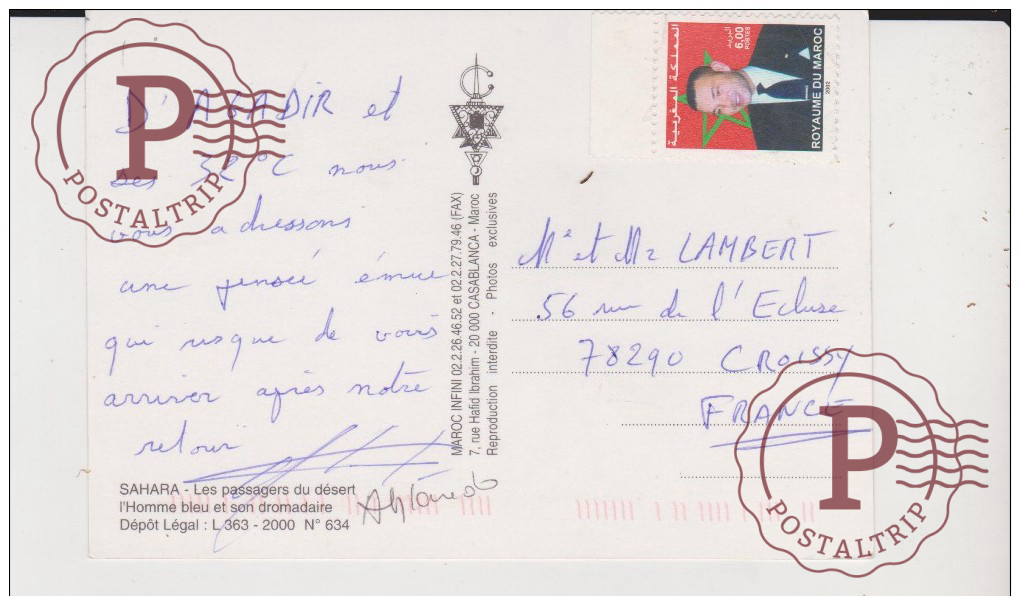 D'AGADIR et
ses 32°C nous
vous adressons
une pensée émue
qui risque de vous
arriver après notre
retour
SAHARA - Les passagers du désert
l'Homme bleu et son dromadaire
Dépôt Légal : L 363 - 2000 N° 634
MAROC INFINI 02.2.26.46.52 et 02.2.27.79.46 (FAX)
7, rue Hafid Ibrahim - 20 000 CASABLANCA - Maroc
Reproduction interdite - Photos exclusives
المملكة المغربية
البريد
6,00
POSTES
ROYAUME DU MAROC
2002
Me et Mr LAMBERT
56 rue de l'Ecluse
78290 CROISSY
FRANCE
P
POSTALTRIP
P
POSTALTRIP